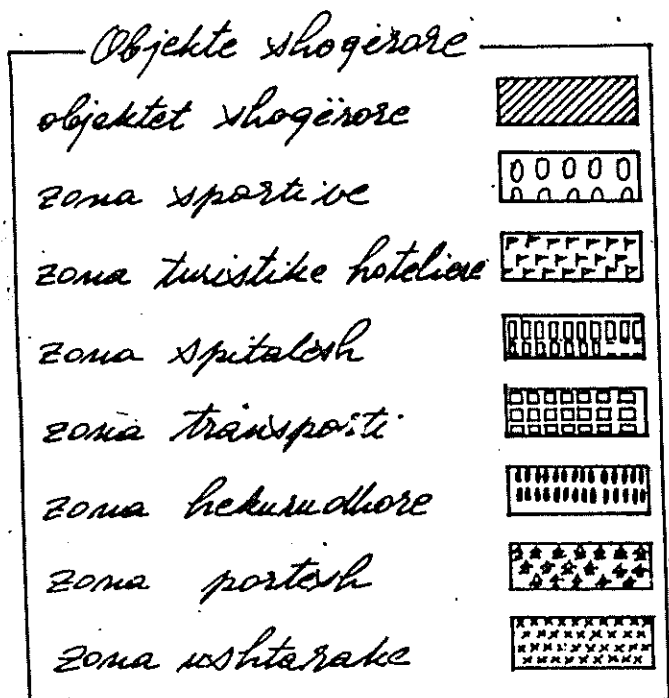 Objekte shoqërore
objektet shoqërore
zona sportive
zona turistike hoteliere
zona spitalesh
zona transporti
zona hekurudhore
zona portesh
zona ushtarake